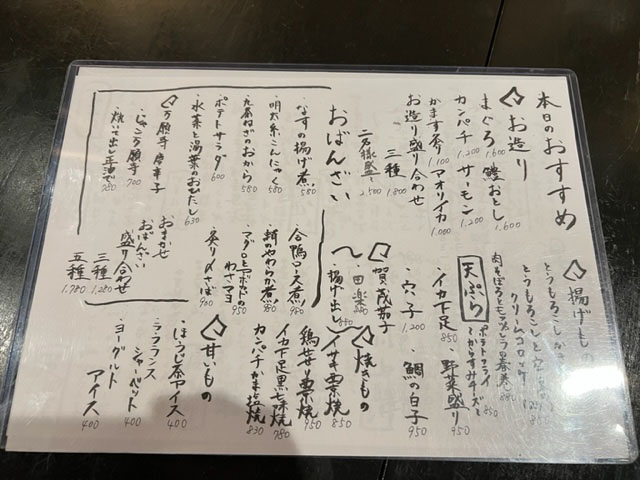 本日のおすすめ
◇お造り
まぐろ 1.600
鱧おとし 1.600
カンパチ 1.200
サーモン 1.200
かます炙り 1.100
アオリイカ 1.000
お造り盛り合わせ
三種 1.800
二名様盛 2.500
おばんざい
・なすの揚げ煮 580
・明太糸こんにゃく 580
・九条ねぎのおから 580
・ポテトサラダ 600
・水菜と湯葉のおひたし 630
・合鴨ロース煮 980
・蛸のやわらか煮
・マグロとアボカドの
わさマヨ 950
・炙り〆さば 900
おまかせ
おばんざい
盛り合わせ
三種 1.280
五種 1.780
◇万願寺唐辛子
・じゃこ万願寺 700
・焼いて出し正油で 780
◇揚げもの
クリームコロッケ
肉そぼろとモッツァレラの春巻 880
ポテトフライ
〜からすみチーズ〜 850
天ぷら
・イカ下足 850
・野菜盛り 950
・穴子 1.200
・鯛の白子 950
◇賀茂茄子
・田楽
・揚げ出し
◇焼きもの
イサキ票焼 850
鶏せせり票焼 950
イカ下足黒七味焼 780
カンパチかま塩焼 830
◇甘いもの
・ほうじ茶アイス 400
・ラ・フランス
シャーベット 400
・ヨーグルト
アイス 400